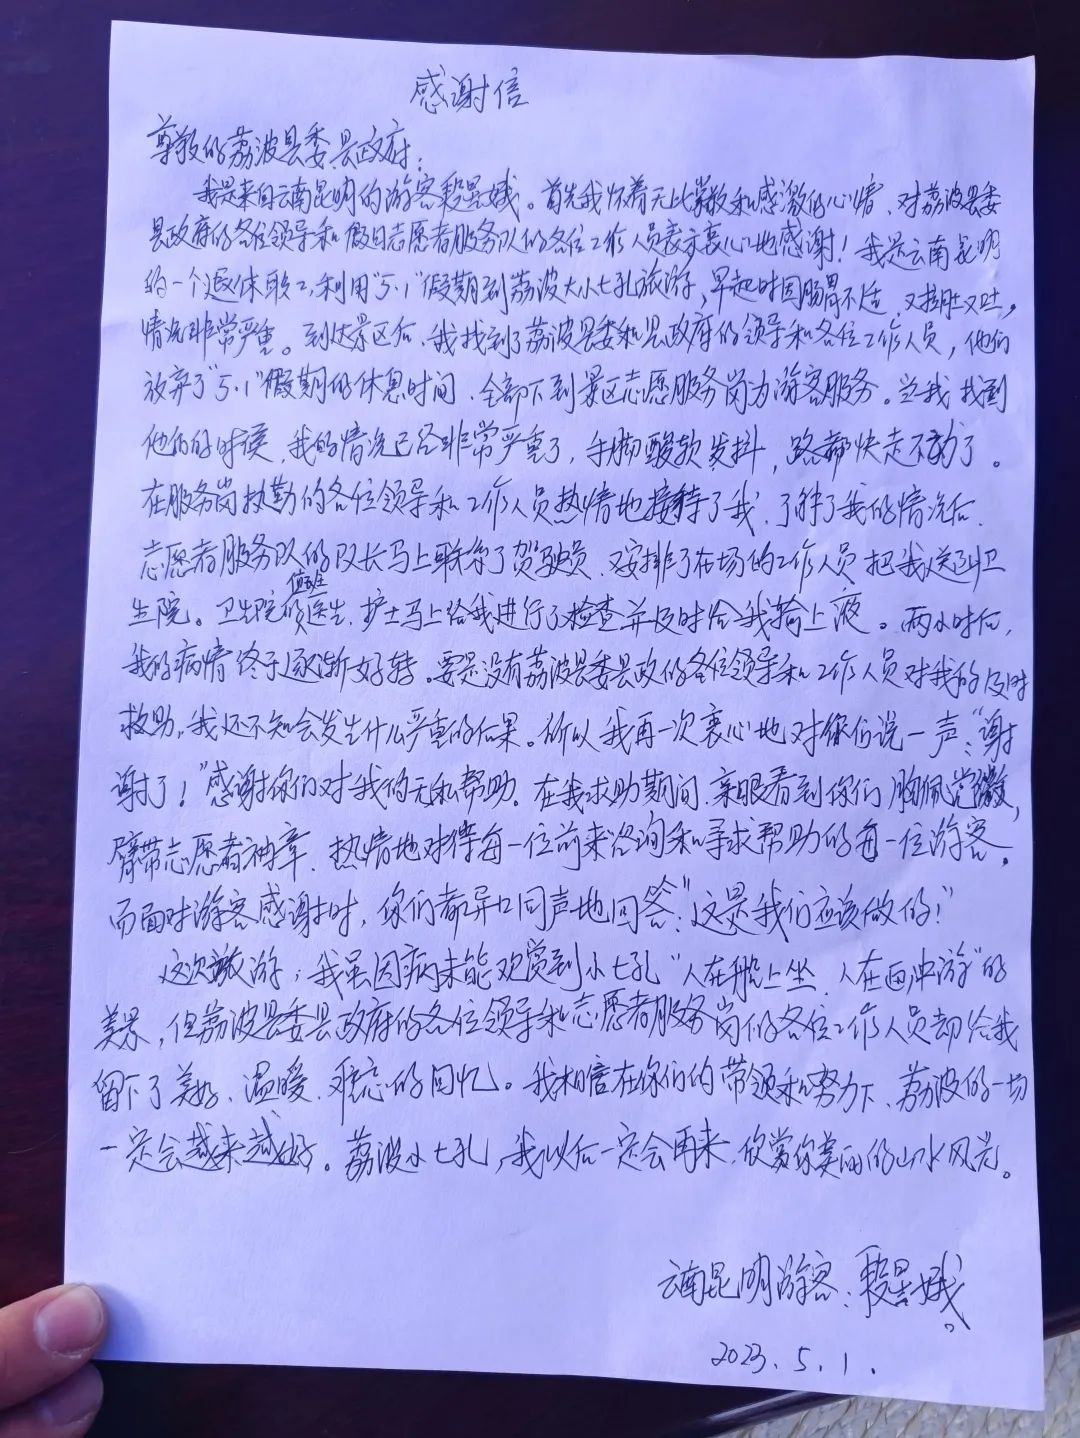 感谢信
尊敬的荔波县委县政府：
我是来自云南昆明的游客星娥。首先我怀着无比崇敬和感激的心情，对荔波县委
县政府的各位领导和假日志愿者服务队的各位工作人员表示衷心地感谢！我是云南昆明
的一个退休职工，利用"5.1"假期到荔波大小七孔旅游，早起时因肠胃不适，又拉肚又吐，
情况非常严重。到达景区后、我找到了荔波县委和县政府的领导和各位工作人员，他们
放弃了"5.1"假期的休息时间、全部下到景区志愿服务岗为游客服务。当我找到
他们的时候，我的情况已经非常严重了，手脚酸软发抖，路都快走不动了。
在服务岗执勤的各位领导和工作人员热情地接待了我、了解了我的情况后、
志愿者服务队的队长马上联系了驾驶员、又安排了在场的工作人员把我送到卫
生院。卫生院的值班医生、护士马上给我进行了检查并及时给我输上液。两小时后，
我的病情终于逐渐好转。要是没有荔波县委县政的各位领导和工作人员对我的及时
救助，我还不知会发生什么严重的后果。所以我再一次衷心地对你们说一声："谢
谢了！"感谢你们对我的无私帮助。在我求助期间、亲眼看到你们胸佩党徽，
臂带志愿者袖章、热情地对待每一位前来咨询和寻求帮助的每一位游客。
而面对游客感谢时，你们都异口同声地回答："这是我们应该做的！"
这次旅游；我虽因病未能欢赏到小七孔"人在船上坐、人在画中游"的
美景，但荔波县委县政府的各位领导和志愿者服务岗们各位工作人员却给我
留下了美好、温暖、难忘的回忆。我相信在你们的带领和努力下、荔波的一切
一定会越来越好。荔波小七孔，我以后一定会再来、欣赏你美丽的山水风光。
云南昆明游客：星娥。
2023.5.1.